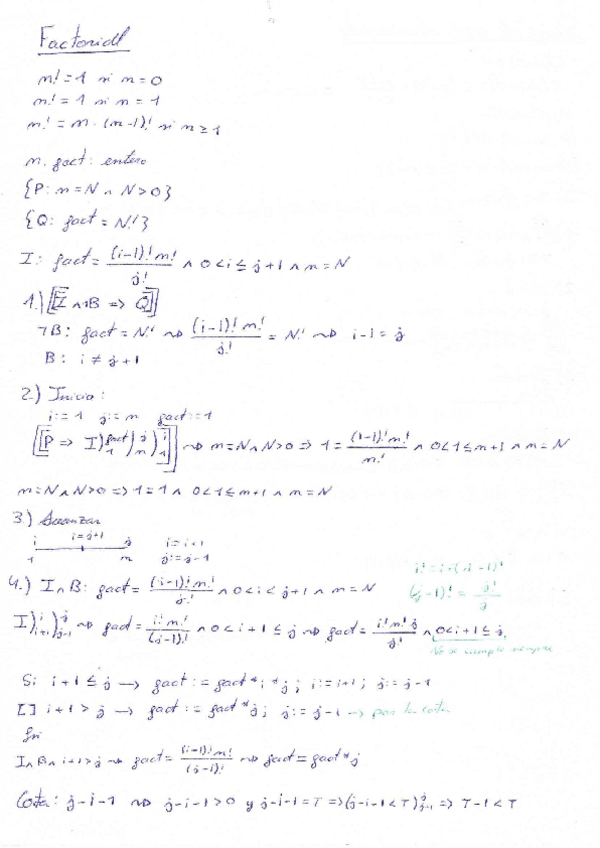 Factorial
n! = 1 si n = 0
n! = 1 si n = 1
n! = n · (n-1)! si n ≥ 1
n, fact: entero
{P: n = N ∧ N > 0}
{Q: fact = N!}
I: fact = (i-1)! n! / j! ∧ 0 < i ≤ j+1 ∧ n = N
1.) [[I ∧ ¬B => Q]]
¬B: fact = N! ⇝ (i-1)! n! / j! = N! ⇝ i-1 = j
B: i ≠ j+1
2.) Inicio:
i := 1 j := n fact := 1
[[P => I) fact 1 ) j n ) i 1 ]] ⇝ n = N ∧ N > 0 => 1 = (1-1)! n! / n! ∧ 0 < 1 ≤ n+1 ∧ n = N
n = N ∧ N > 0 => 1 = 1 ∧ 0 < 1 ≤ n+1 ∧ n = N
3.) Avanzar
i i=j+1 j i := i+1
1 n j := j-1
i! = i · (i-1)!
4.) I ∧ B: fact = (i-1)! n! / j! ∧ 0 < i < j+1 ∧ n = N (j-1)! = j! / j
I) i i+1 ) j j-1 ⇝ fact = i! n! / (j-1)! ∧ 0 < i+1 ≤ j ⇝ fact = i! n! j / j! ∧ 0 < i+1 ≤ j
No se cumple siempre
Si i+1 ≤ j → fact := fact * i * j; i := i+1; j := j-1
[] i+1 > j → fact := fact * j; j := j-1 → por la cota
fsi
I ∧ B ∧ i+1 > j ⇝ fact = (i-1)! n! / (j-1)! ⇝ fact = fact * j
Cota: j-i-1 ⇝ j-i-1 > 0 y j-i-1 = T => (j-i-1 < T) j j-1 => T-1 < T